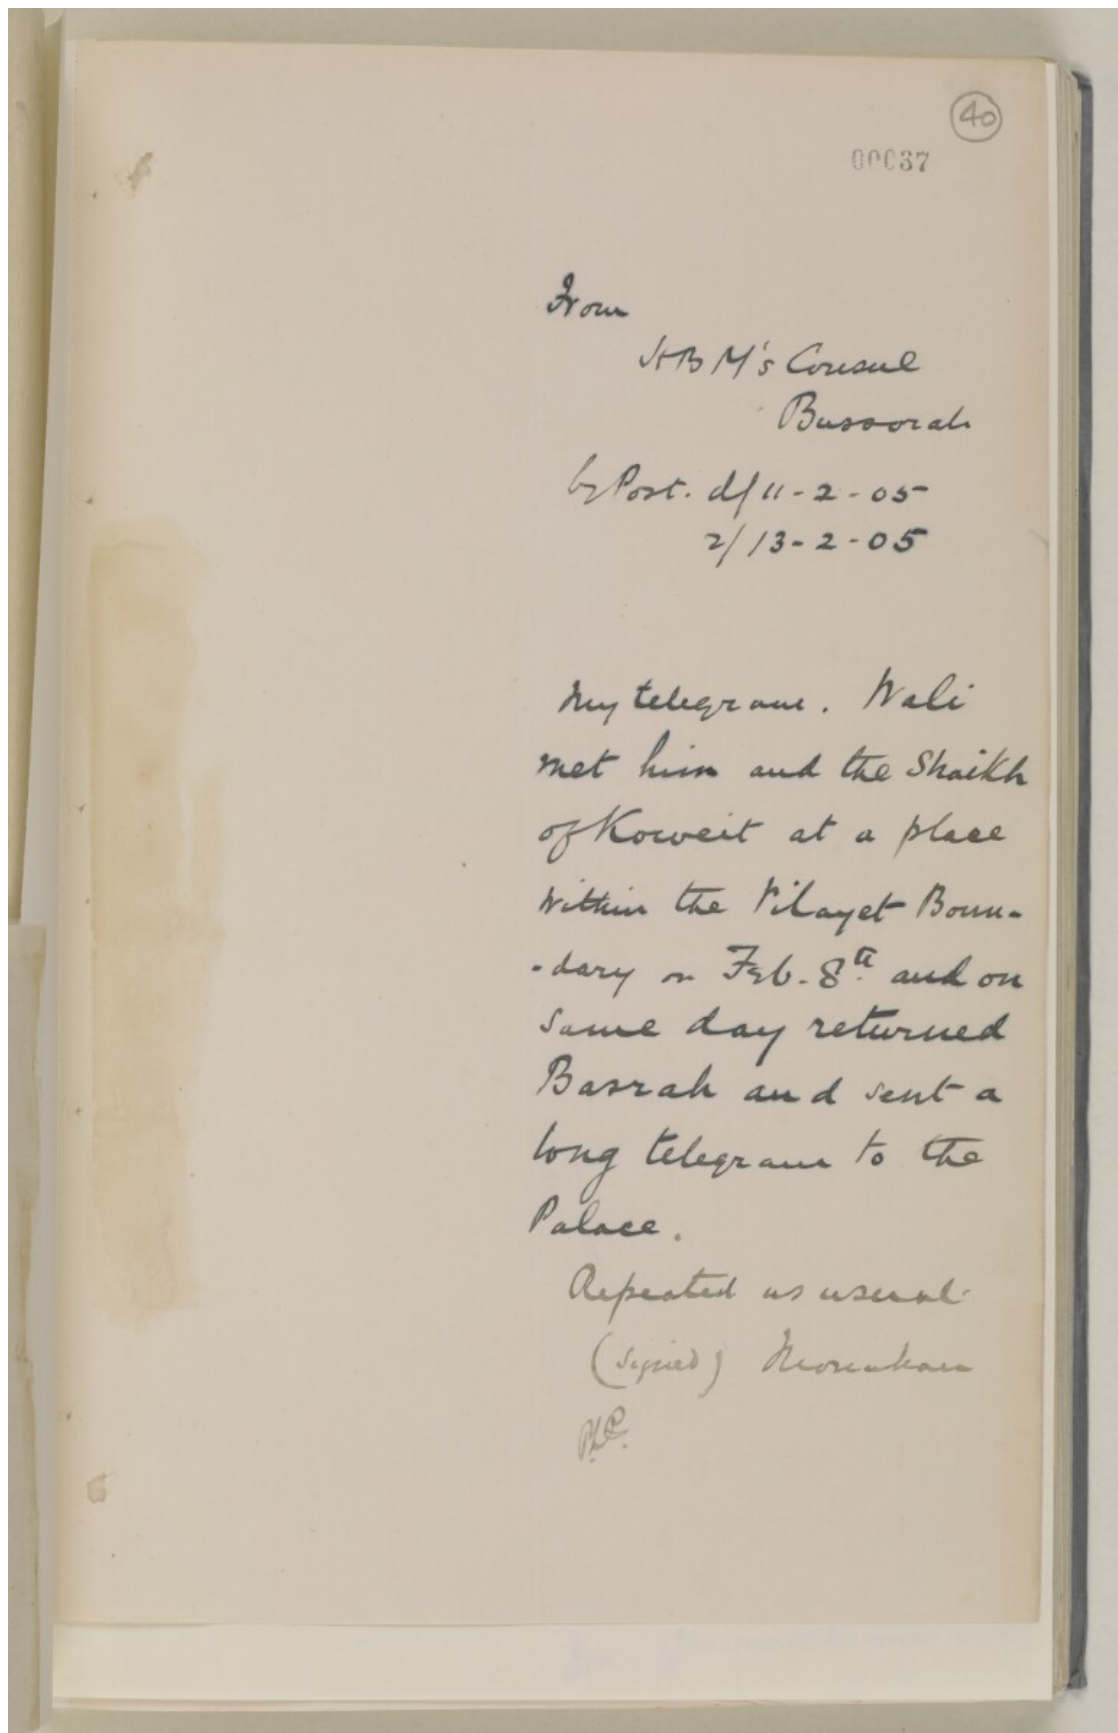 40
00037
From
HBM's Consul
Bussorah
by Post. d/11-2-05
r/13-2-05
My telegram. Wali
met him and the Shaikh
of Koweit at a place
within the Vilayet Boun-
-dary on Feb. 8th and on
same day returned
Basrah and sent a
long telegram to the
Palace.
Repeated as usual.
(signed) Monahan